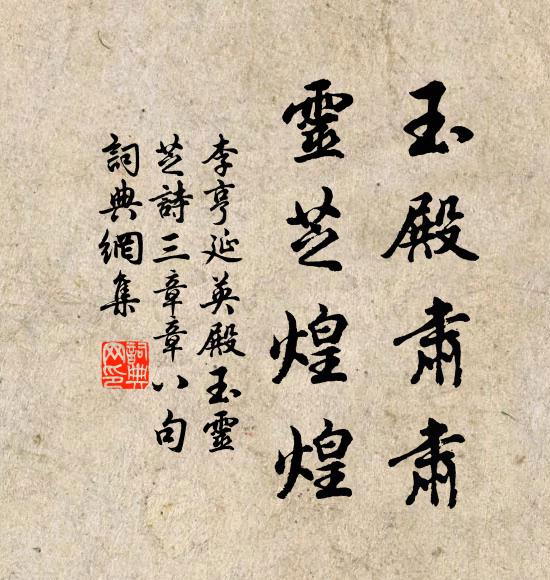 玉殿肅肅
靈芝煌煌
李亨延英殿玉靈
芝詩三章章八句
詞典網集
詞典网印